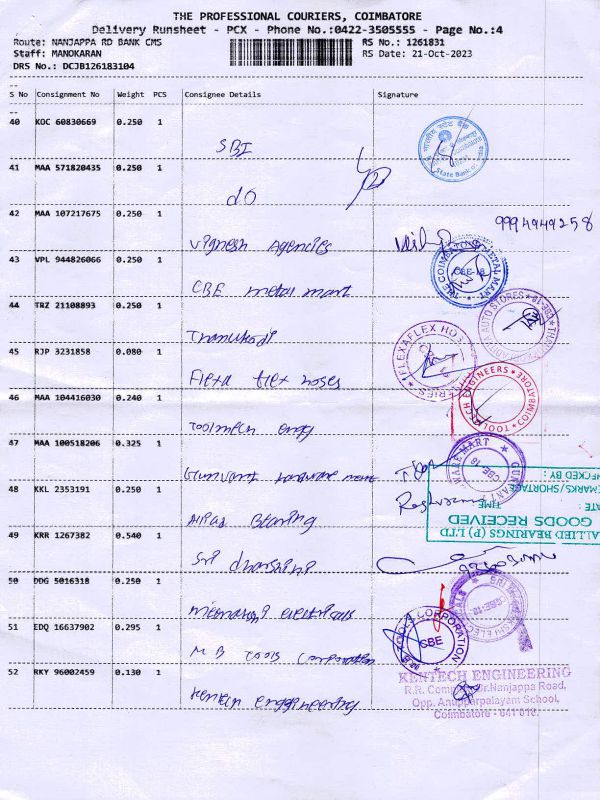 THE PROFESSIONAL COURIERS, COIMBATORE
Delivery Runsheet - PCX - Phone No.:0422-3505555 - Page No.:4
Route: NANJAPPA RD BANK CMS
RS No.: 1261831
Staff: MANOKARAN
RS Date: 21-Oct-2023
DRS No.: DCJB126183104
S No Consignment No Weight PCS Consignee Details Signature
40 KOC 60830669 0.250 1
SBI
State Bank of
41 MAA 571820435 0.250 1
do
42 MAA 107217675 0.250 1
9994949258
Vignesh Agencies
43 VPL 944826066 0.250 1
THE COIMBATORE METAL MART
CBE-18
CBE metal mart
44 TRZ 21108893 0.250 1
AUTO STORES
CBE-18
45 RJP 3231858 0.080 1
FLEXAFLEX HOSE
Flexa flex hoses
46 MAA 104416030 0.240 1
TOOLMECH ENGINEERS
COIMBATORE
Toolmech engg
47 MAA 100518206 0.325 1
GUNVANT WARE MART
CBE 18
Gunvant hardware mart
48 KKL 2353191 0.250 1
CHECKED BY :
REMARKS/SHORTAGE
DATE : TIME
GOODS RECEIVED
ALLIED BEARINGS (P) LTD
Bearing
49 KRR 1267382 0.540 1
Sri dharshini
50 DDG 5016318 0.250 1
CBE-18
Meenatchi electricals
51 EDQ 16637902 0.295 1
M.B. TOOLS CORPORATION
CBE
M B Tools Corporation
52 RKY 96002459 0.130 1
KENTECH ENGINEERING
R.R. Complex, Dr.Nanjappa Road,
Opp. Anupparpalayam School,
Coimbatore - 641 018.
Kentech enggineering